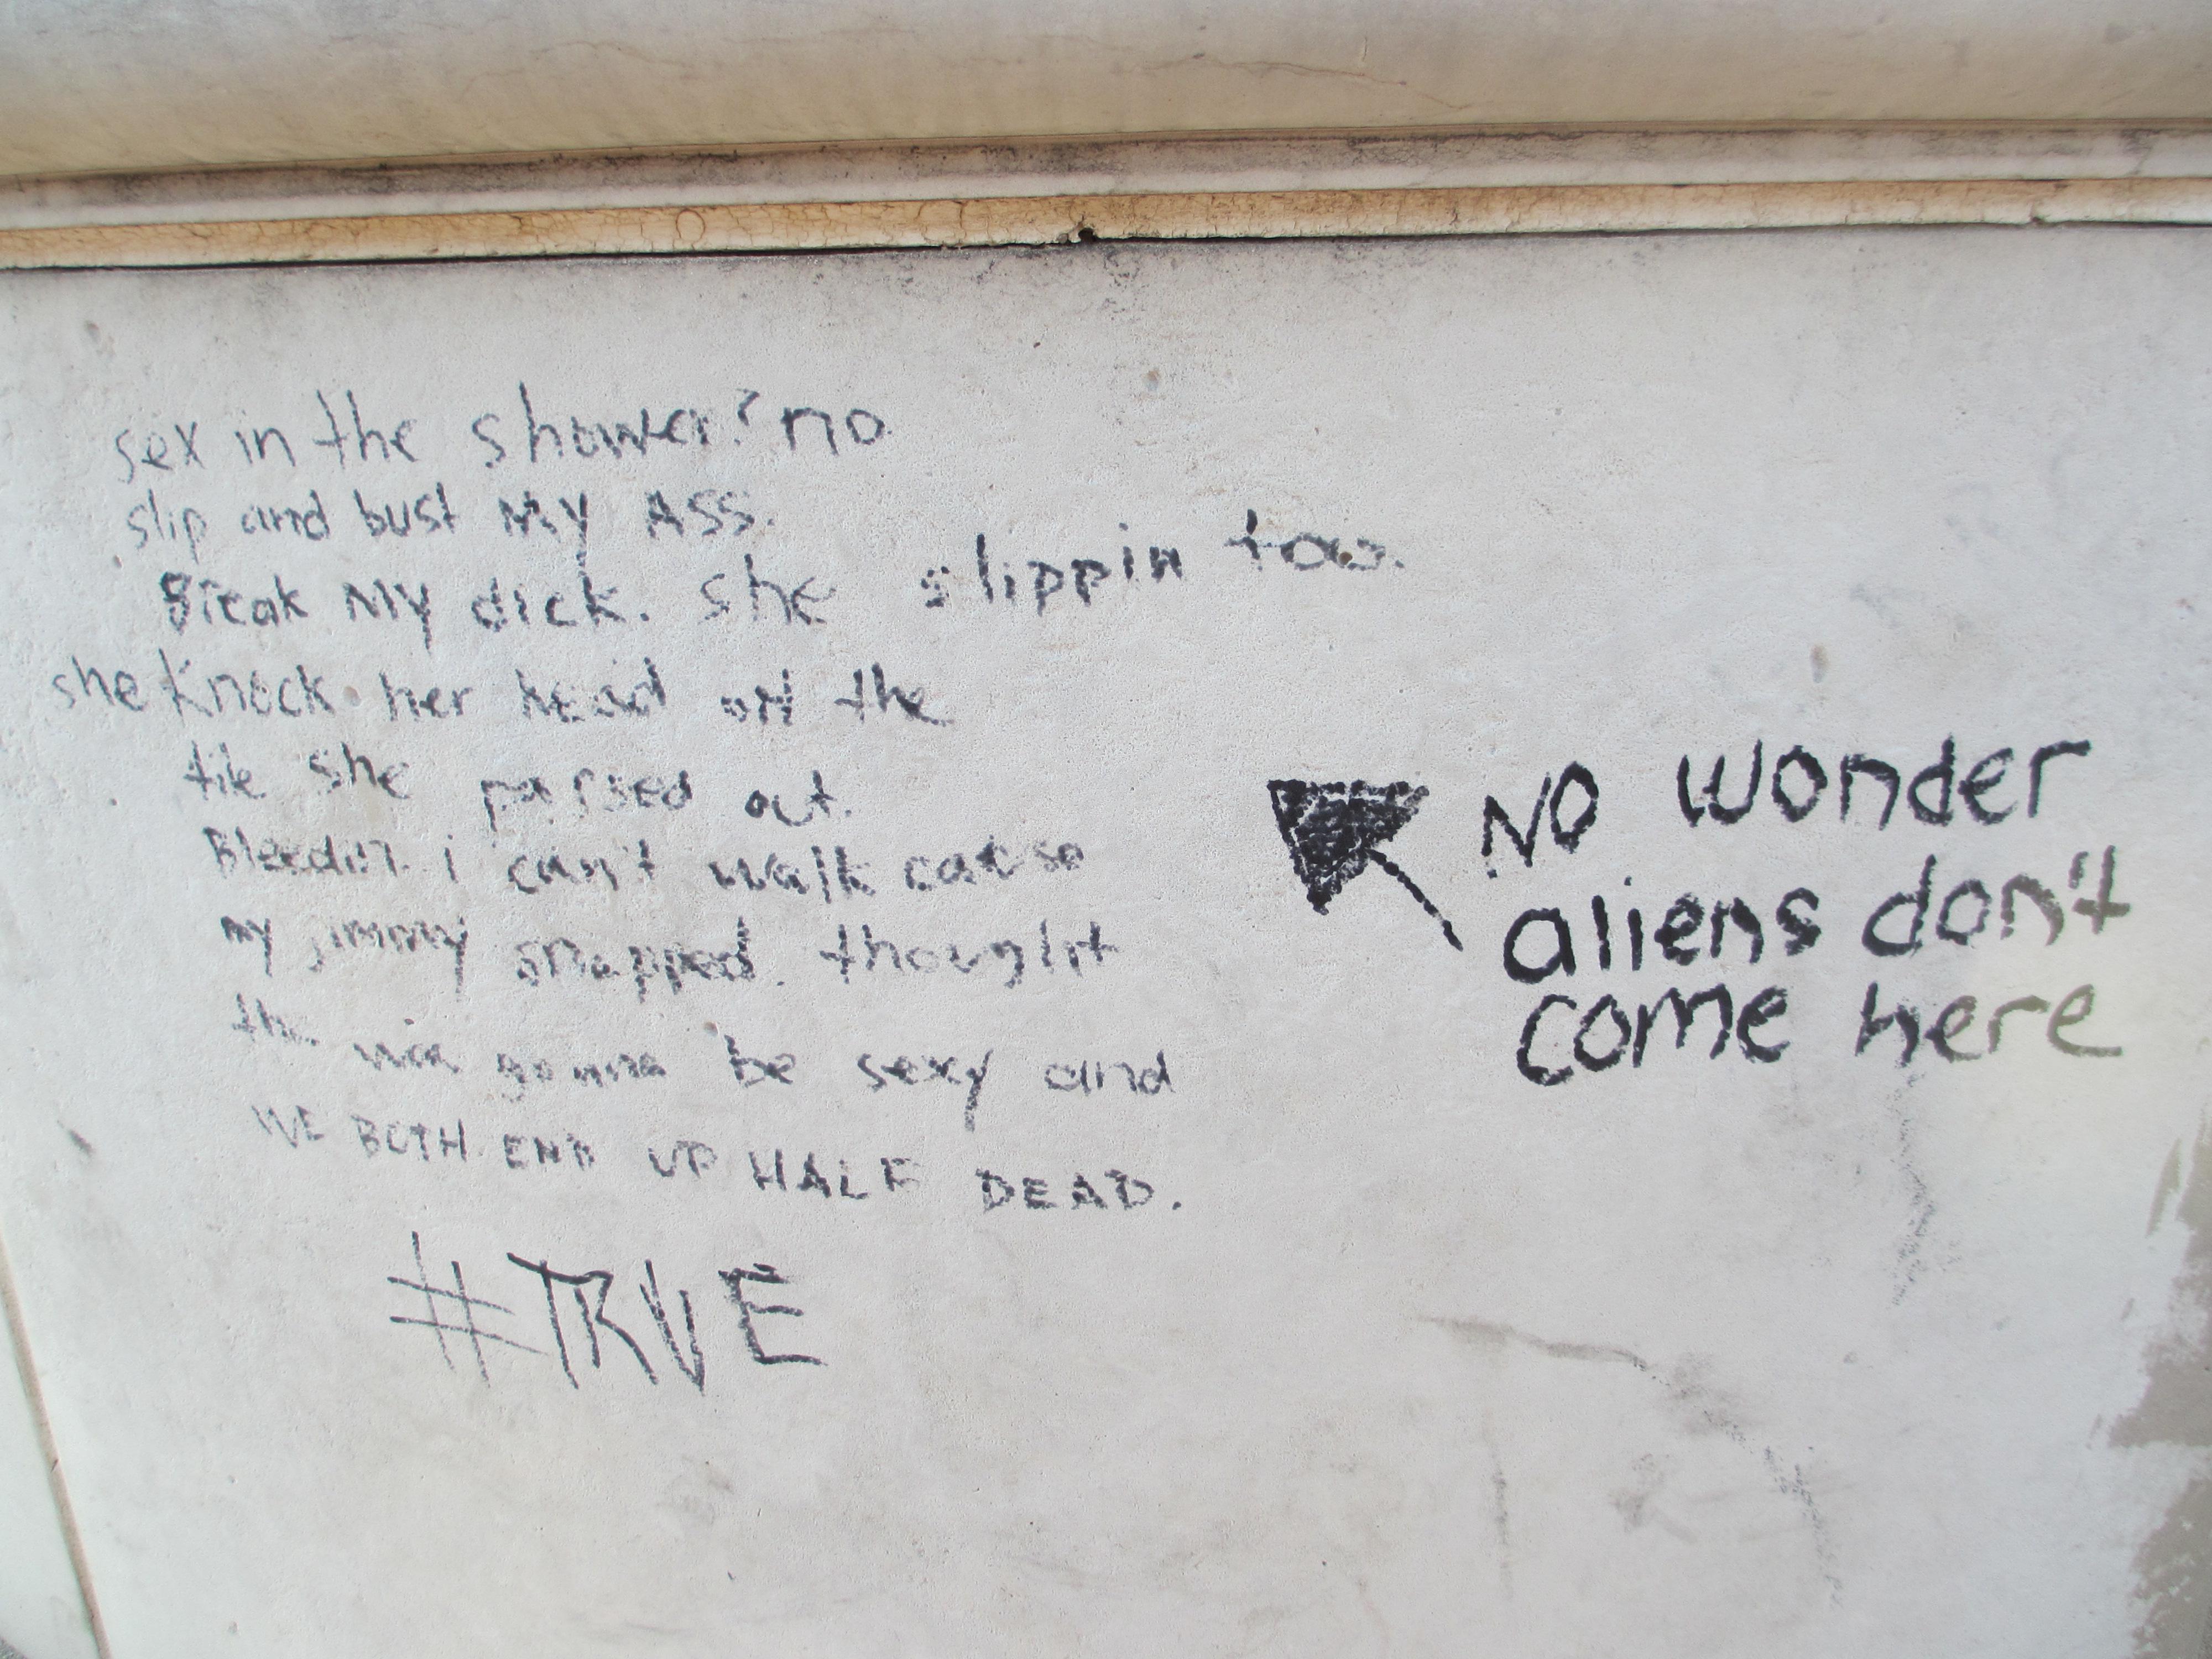 sex in the shower? no
slip and bust MY ASS.
Break MY dick. she slippin too.
she knock her head on the
tile she passed out.
Bleedin. i can't walk cause
my jimmy snapped. thought
the was gonna be sexy and
WE BOTH END UP HALF DEAD.
#TRUE
NO wonder
aliens don't
come here